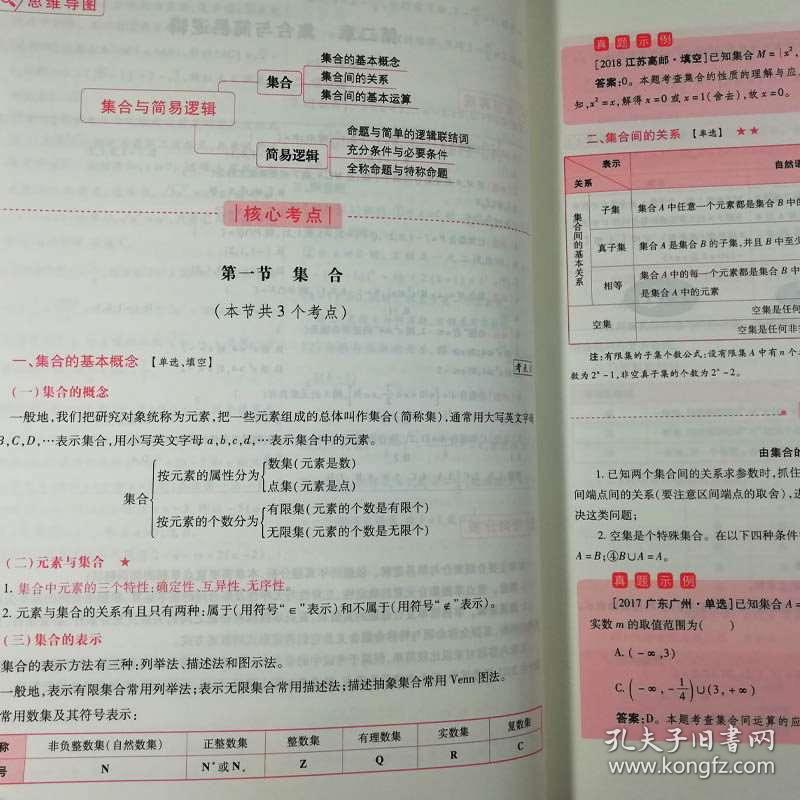 思维导图
集合与简易逻辑
集合
集合的基本概念
集合间的关系
集合间的基本运算
简易逻辑
命题与简单的逻辑联结词
充分条件与必要条件
全称命题与特称命题
核心考点
第一节 集 合
(本节共3个考点)
一、集合的基本概念 【单选、填空】
考点
(一)集合的概念
一般地,我们把研究对象统称为元素,把一些元素组成的总体叫作集合(简称集),通常用大写英文字母
B,C,D,…表示集合,用小写英文字母a,b,c,d,…表示集合中的元素。
集合
按元素的属性分为
数集(元素是数)
点集(元素是点)
按元素的个数分为
有限集(元素的个数是有限个)
无限集(元素的个数是无限个)
(二)元素与集合 ★
1. 集合中元素的三个特性:确定性、互异性、无序性。
2. 元素与集合的关系有且只有两种:属于(用符号“∈”表示)和不属于(用符号“∉”表示)。
(三)集合的表示
集合的表示方法有三种:列举法、描述法和图示法。
一般地,表示有限集合常用列举法;表示无限集合常用描述法;描述抽象集合常用 Venn 图法。
常用数集及其符号表示:
称 非负整数集(自然数集) 正整数集 整数集 有理数集 实数集 复数集
号 N N*或N₊ Z Q R C
真题示例
[2018 江苏高邮·填空]已知集合 M={x²,
答案:0。本题考查集合的性质的理解与应
知,x²=x,解得 x=0 或 x=1(舍去),故 x=0。
二、集合间的关系 【单选】 ★★
表示
关系
自然语
集合间的基本关系
子集 集合A中任意一个元素都是集合B中的
真子集 集合A是集合B的子集,并且B中至少
相等 集合A中的每一个元素都是集合B中
是集合A中的元素
空集
空集是任何
空集是任何非
注:有限集的子集个数公式:设有限集A中有n个
数为2ⁿ-1,非空真子集的个数为2ⁿ-2。
由集合的
1. 已知两个集合间的关系求参数时,抓住
间端点间的关系(要注意区间端点的取舍),进
决这类问题;
2. 空集是个特殊集合。在以下四种条件
A=B;④B∪A=A。
真题示例
[2017 广东广州·单选]已知集合 A=
实数m的取值范围为( )
A. (-∞,3)
C. (-∞,-1/4)∪(3,+∞)
答案:D。本题考查集合间运算的应
孔夫子旧书网
www.kongfz.com